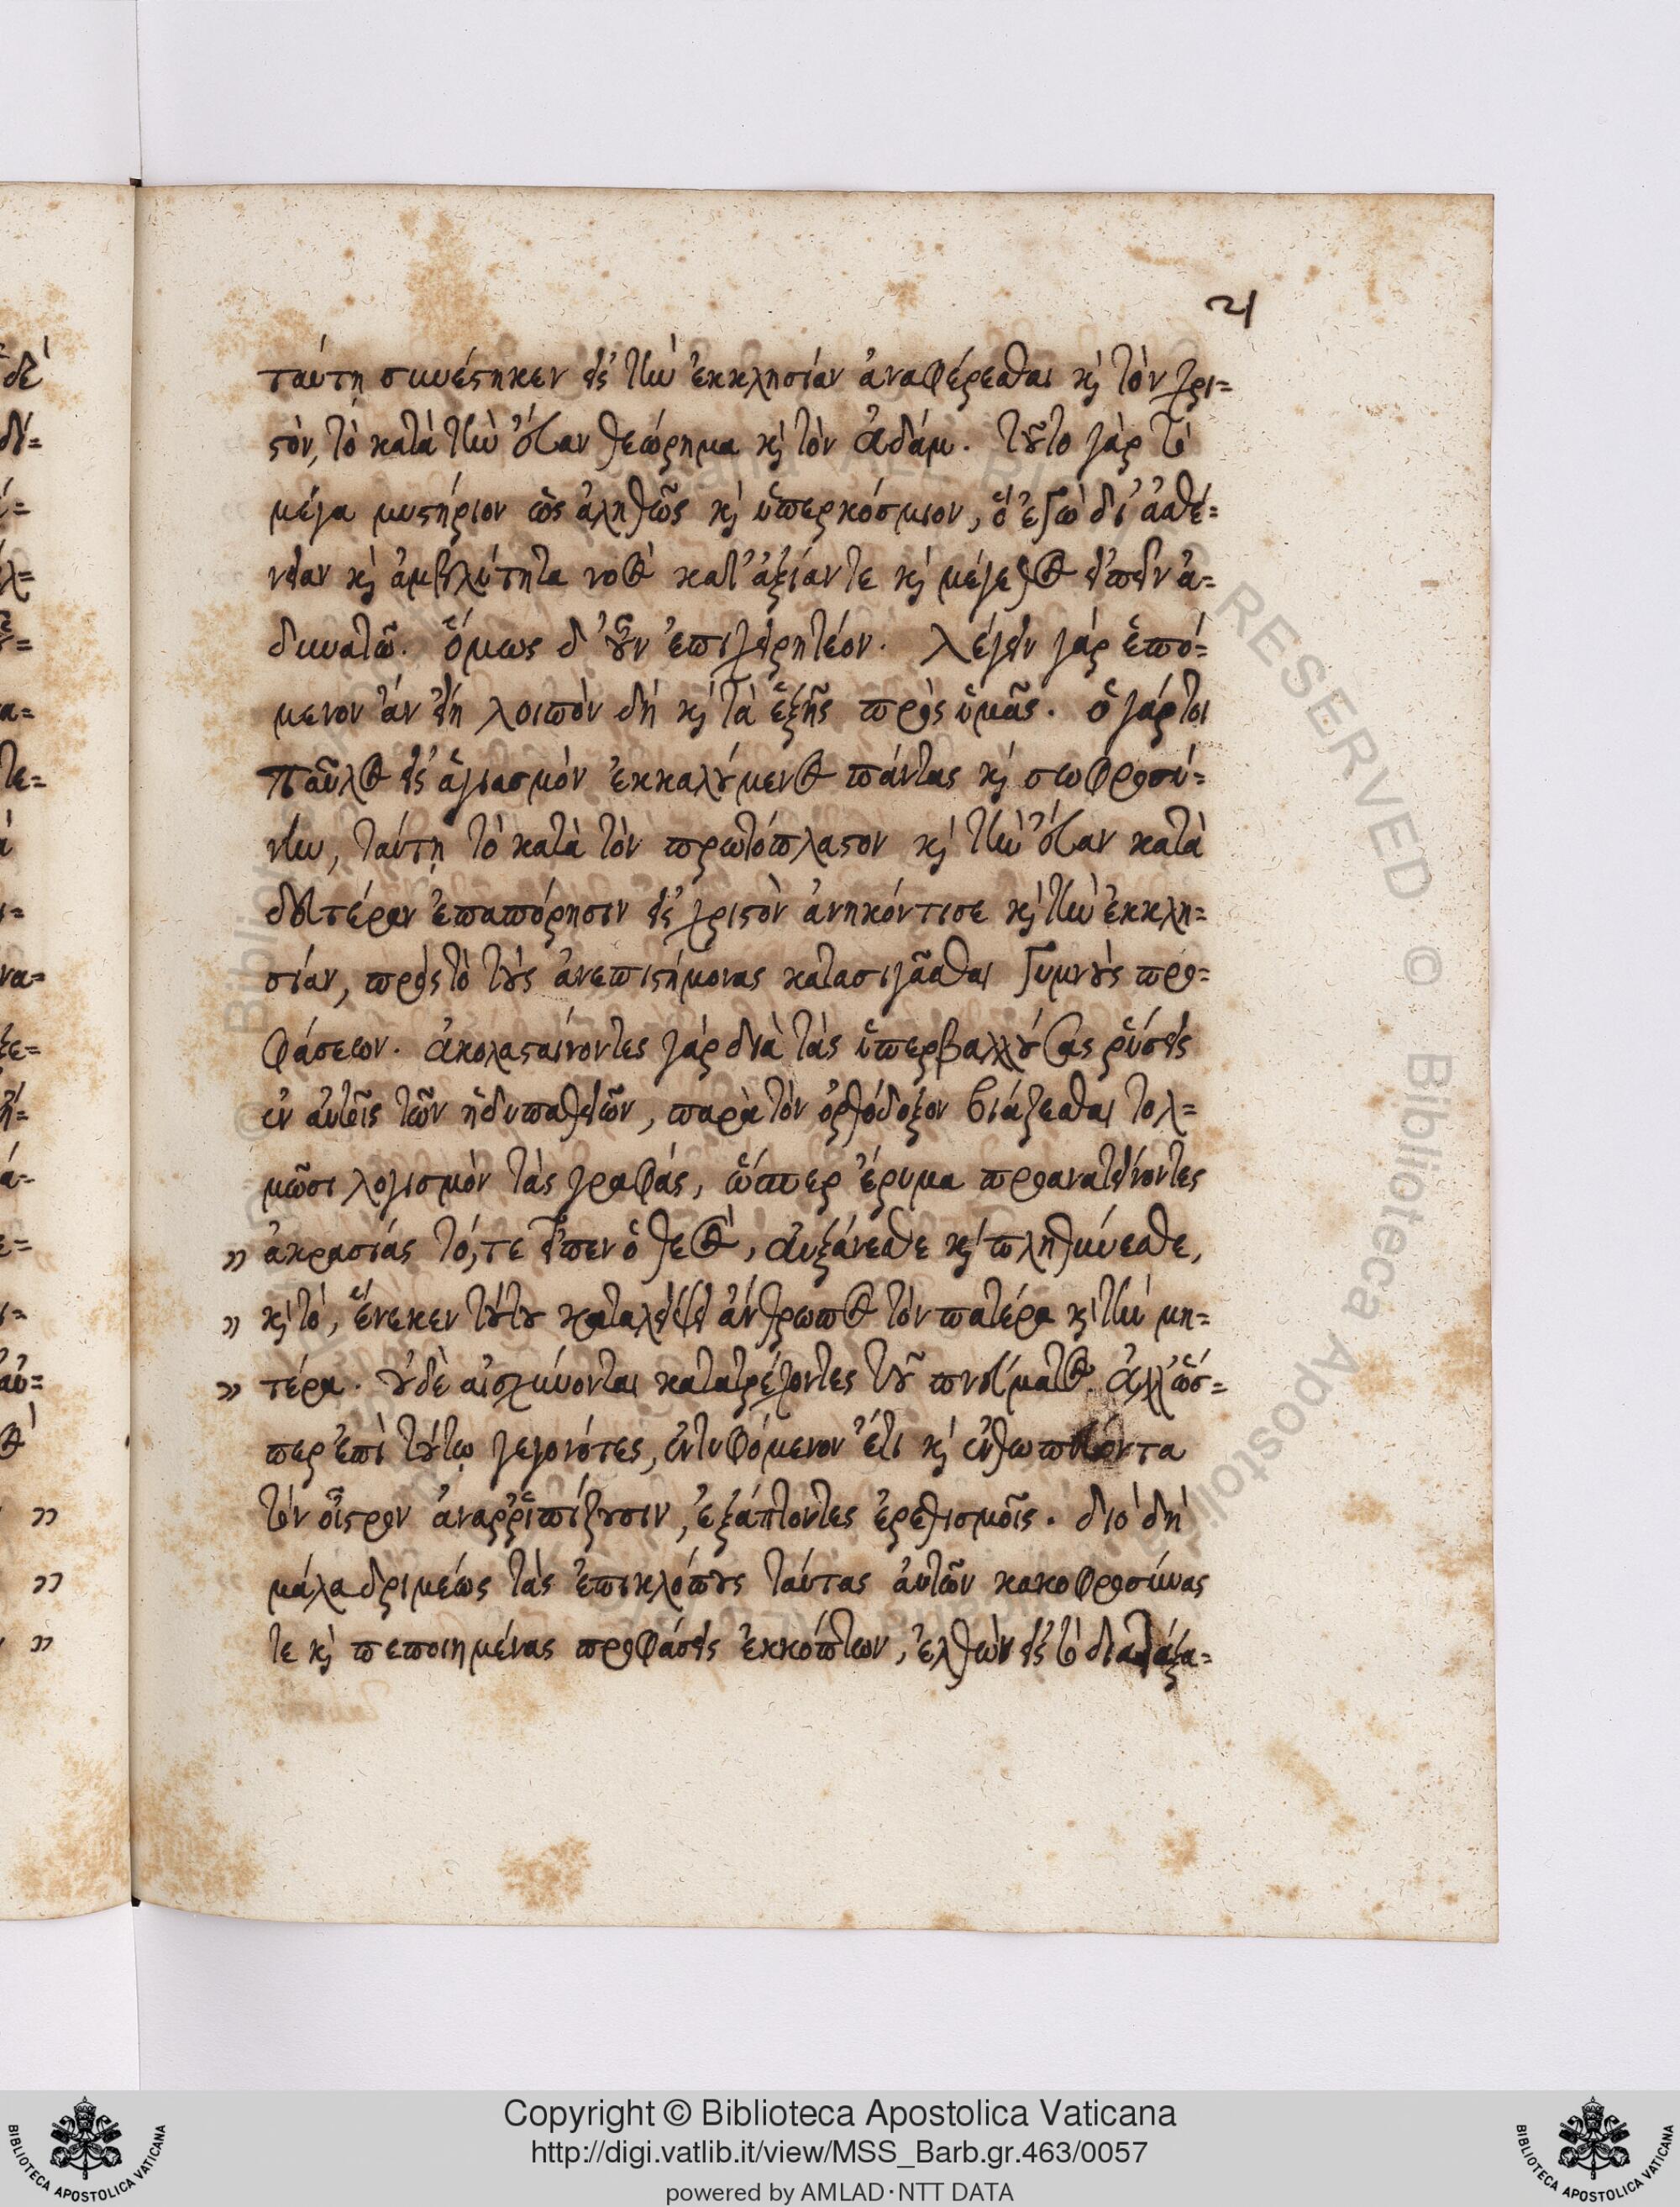 21
ταύτῃ συνέστηκεν εἰς τὴν ἐκκλησίαν ἀναφέρεσθαι καὶ τὸν χρι=
στὸν, τὸ κατὰ τὴν εὔαν θεώρημα καὶ τὸν ἀδάμ. τοῦτο γὰρ τὸ
μέγα μυστήριον ὡς ἀληθῶς καὶ ὑπερκόσμιον, ὃ ἐγὼ δι' ἀσθέ=
νειαν καὶ ἀμβλύτητα νοὸς κατ' ἀξίαν τε καὶ μέγεθος εἰπεῖν ἀ=
δυνατῶ. ὅμως δ' οὖν ἐπιχειρητέον. λέγειν γὰρ ἑπό=
μενον ἂν εἴη λοιπὸν δὴ καὶ τὰ ἑξῆς πρὸς ὑμᾶς. ὁ γάρ τοι
παῦλος εἰς ἁγιασμὸν ἐκκαλούμενος πάντας καὶ σωφροσύ=
νην, ταύτῃ τὸ κατὰ τὸν πρωτόπλαστον καὶ τὴν εὔαν κατὰ
δευτέραν ἐπαπόρησιν εἰς χριστὸν ἀνηκόντισε καὶ τὴν ἐκκλη=
σίαν, πρὸς τὸ τοὺς ἀνεπιστήμονας κατασιγᾶσθαι γυμνοὺς προ=
φάσεων. ἀκολασταίνοντες γὰρ διὰ τὰς ὑπερβαλλούσας ῥύσεις
ἐν αὐτοῖς τῶν ἡδυπαθειῶν, παρὰ τὸν ὀρθόδοξον βιάζεσθαι τολ=
μῶσι λογισμὸν τὰς γραφάς, ὥσπερ ἔρυμα προανατείνοντες
» ἀκρασίας τό, τε εἶπεν ὁ θεὸς, αὐξάνεσθε καὶ πληθύνεσθε,
» καὶ τὸ, ἕνεκεν τούτου καταλείψει ἄνθρωπος τὸν πατέρα καὶ τὴν μη=
» τέρα. οὐδὲ αἰσχύνονται κατατρέχοντες τοῦ πνεύματος. ἀλλ' ὥσ=
περ ἐπὶ τούτῳ γεγονότες, ἐντυφόμενον ἔτι καὶ ἐνθωπεύοντα
τὸν οἶστρον ἀναρριπίζουσιν, ἐξάπτοντες ἐρεθισμοῖς. διὸ δὴ
μάλα δριμέως τὰς ἐπικλόπους ταύτας αὐτῶν κακοφροσύνας
τε καὶ πεποιημένας προφάσεις ἐκκόπτων, ἐλθὼν εἰς τὸ διατάξα=
Copyright © Biblioteca Apostolica Vaticana
http://digi.vatlib.it/view/MSS_Barb.gr.463/0057
powered by AMLAD·NTT DATA
BIBLIOTECA APOSTOLICA VATICANA
BIBLIOTECA APOSTOLICA VATICANA